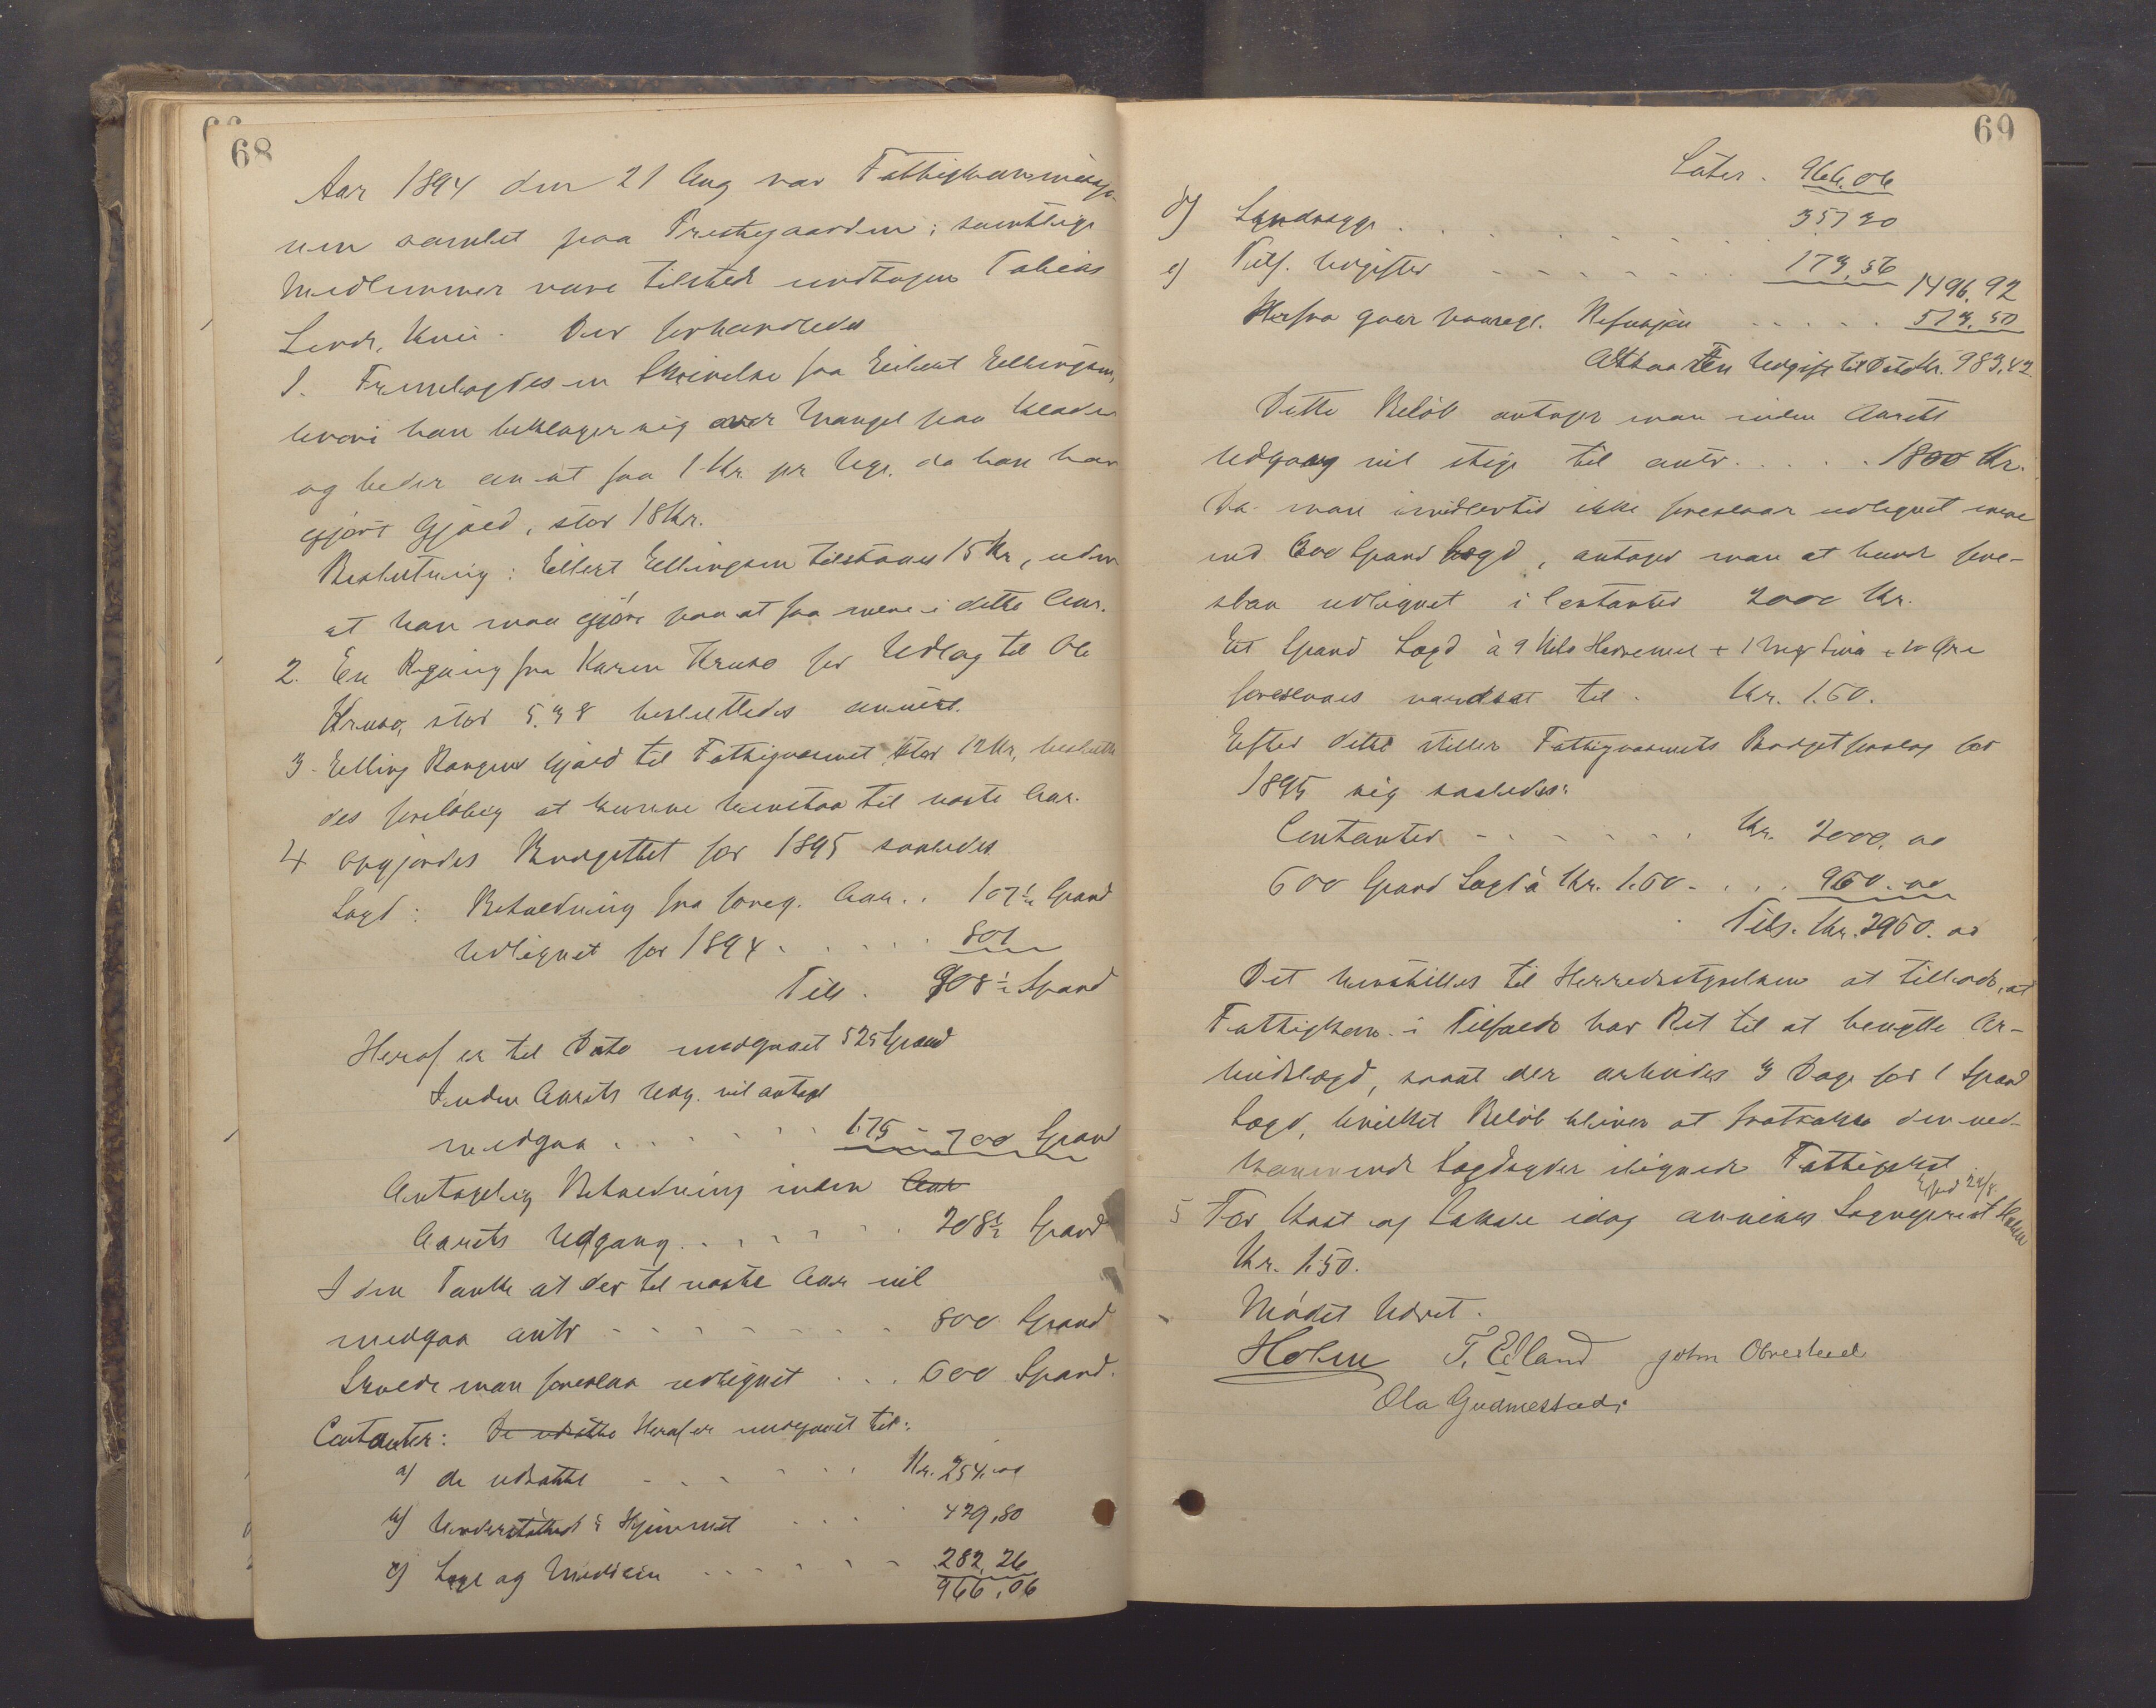 68
Aar 1894 den 21 Aug var Fattigkommissjo-
nen samlet paa Prestegaarden; samtlige
Medlemmer vare tilstede undtagen Tobias
Der forhandledes
1. Fremlagdes en Skrivelse fra Eilert Ellingsen,
hvori han beklager sig over Mangel paa Klæder
og beder om at faa 1 Kr. pr Uge. da han har
gjort Gjæld, stor 18 Kr.
Beslutning: Eilert Ellingsen tilstaaes 15 Kr, uden
at han maa gjøre paa at faa mere i dette Aar.
2. En Regning fra Karen Kruso for Udlag til Ole
Kruso, stor 5.38 besluttedes anvist.
3. Elling Gjæld til Fattigvæsenet stor 12 Kr, beslutte-
des foreløbig at kunne henstaa til næste Aar.
4 opgjordes Budgettet for 1895 saaledes
Lægd: Beholdning fra foreg. Aar.. 107½ Spand
Udlignet for 1894 . . . . . 801
Tils. 908½ Spand
Heraf er til Dato medgaaet 525 Spand
Inden Aarets Udg. vil antagl
medgaa . . . . . . 175 - 700 Spand
Antagelig Beholdning inden Aar
Aarets Udgang . . . . . . 208½ Spand
I den Tanke at der til næste Aar vil
medgaa antl - - - - - - - 800 Spand
Skulde man foreslaa udlignet . . . 600 Spand.
Contanter: De udsatte Heraf er medgaaet til:
a) de udsatte - - - - - Kr. 254.00
b) Understøttede i Hjemmet . . . 429,80
c) Læge og Medicin . . . . . . 282,26
966,06
69
Later . 966.06
d) Sindssyge . . . . . . . . 357 30
e) Tilf. Udgifter - - - - - - - 173,56 1496,92
Herfra gaar Refusjon . . . . . 513,50
Altsaa Udgift til Dato Kr. 983,42
Dette Beløb antager man inden Aarets
Udgang vil stige til antl. . . . . . 1800 Kr.
Da man imidlertid ikke foreslaar udlignet mere
end 600 Spand Lægd, antager man at burde fore-
slaa udlignet i Contanter 2000 Kr.
Et Spand Lægd à 9 Kilo Havremel + 1 + 10 Øre
foreslaaes værdsat til . Kr. 1.60.
Efter dette stiller Fattigvæsenets Budgetforslag for
1895 sig saaledes:
Contanter - - - - - - . Kr. 2000.00
600 Spand Lægd à Kr. 1.60 - . . . 960.00
Tils. Kr. 2960.00
Det henstilles til Herredsstyrelsen at tillade, at
Fattigkom. i Tilfælde har Ret til at benytte Ar-
beidslægd, saaat der arbeides 3 Dage for 1 Spand
Lægd, hvilket Beløb bliver at fratrække den ved-
kommende Lægdsyder ilignede Fattigskat
5 For Kost og Lokale idag anvises Sogneprest Holm
Kr. 1.50.
Mødet hævet.
Holm T. Edland John Obrestad
Ola Gudmestad.